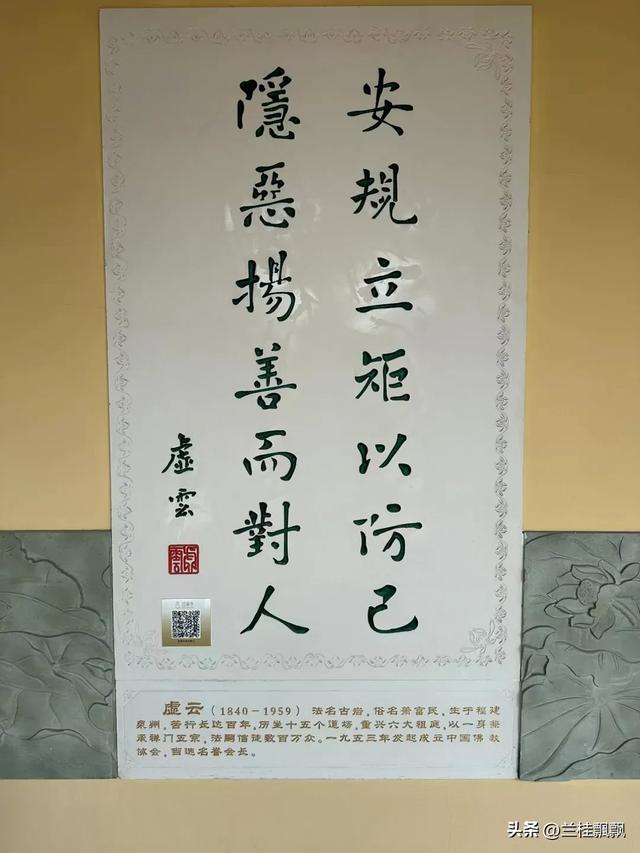 安規立矩以防己
隱惡揚善而對人
虛雲
虚云（1840－1959） 法名古岩，俗名萧富民，生于福建
泉州，苦行长达百年，历坐十五个道场，重兴六大祖庭，以一身兼
承禅门五宗，法嗣信徒数百万众。一九五三年发起成立中国佛教
协会，首选名誉会长。
头条 @兰桂飘飘